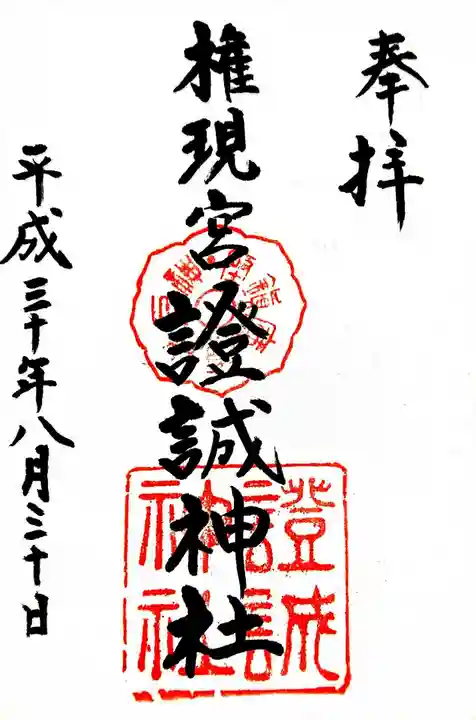 奉拝
権現宮證誠神社
證誠
神社
平成三十年八月三十日